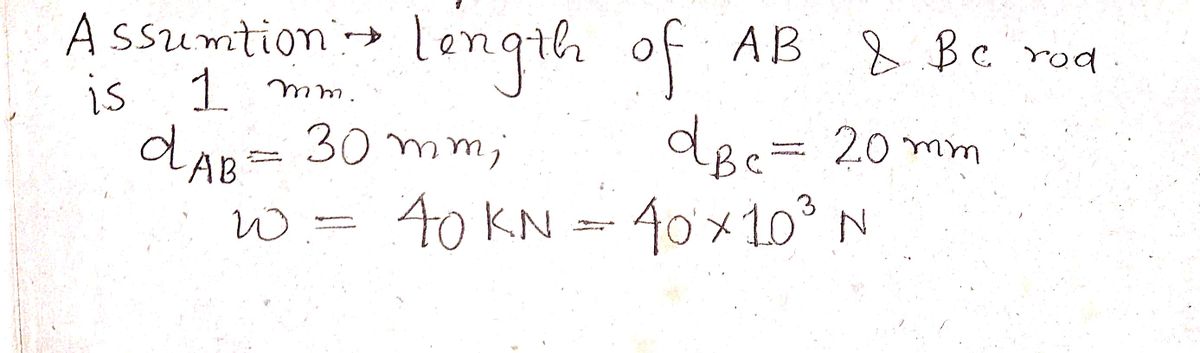 Assumtion:→ length of AB & BC rod
is 1 mm.
dAB = 30 mm; dBC = 20 mm
W = 40 KN = 40×10³ N